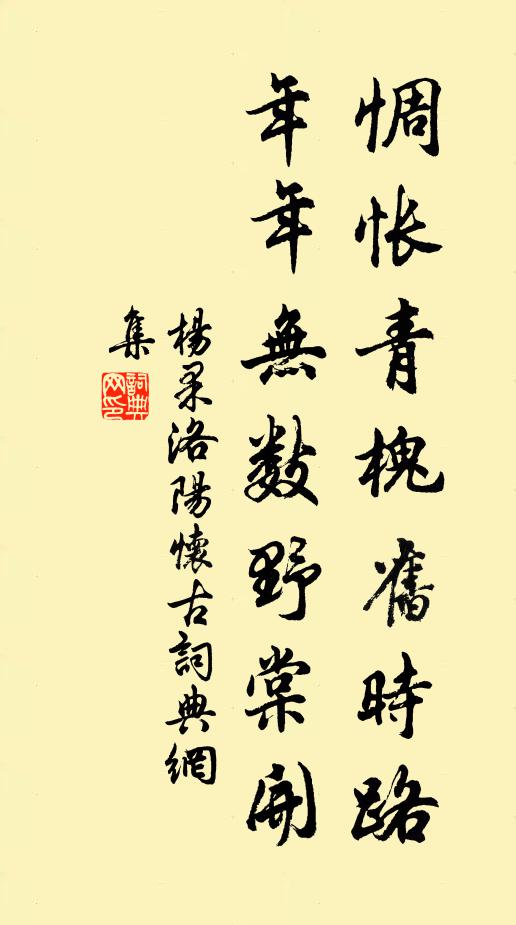 惆悵青槐舊時路
年年無數野棠開
楊果洛陽懷古詞典網
集
詞典
网印